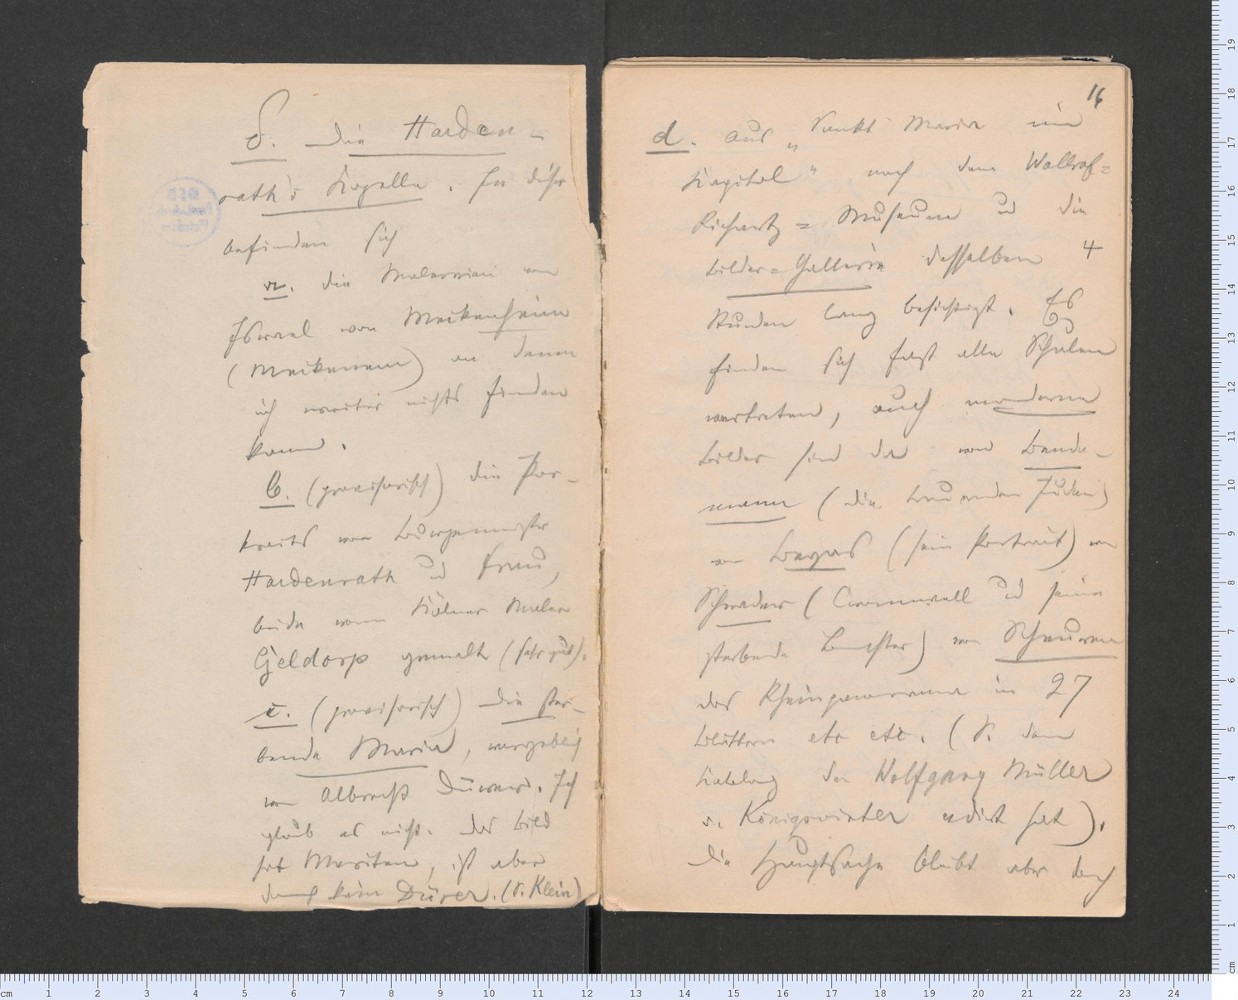 δ. Die Harden-
rath's Kapelle. In dieser
befinden sich
a. die Malereien von
Israel von Meckenheim
(Meckenem) von denen
ich weiter nichts finden
kann.
b. (provisorisch) die Por-
traits von Bürgermeister
Hardenrath und Frau,
beide vom Kölner Maler
Geldorp gemalt (sehr gut).
c. (provisorisch) die ster-
bende Maria, angeblich
von Albrecht Dürer. Ich
glaub es nicht. Das Bild
hat Meriten, ist aber
doch kein Dürer. (S. Klein)
16
d. Aus „Sankt Maria im
Kapitol" nach dem Wallraf=
Richartz=Museum u die
Bilder=Gallerie desselben 4
Stunden lang besichtigt. Es
finden sich fast alle Schulen
vertreten, auch moderne
Bilder sind da von Bende-
mann (die trauernden Juden)
von Begas (sein Portrait) von
Schrader (Cromwell und seine
sterbende Tochter) von Scheuren
das Rheinpanorama in 27
Blättern etc etc. (S. dem
Katalog den Wolfgang Müller
v. Königswinter edirt hat).
Die Hauptsache bleibt aber doch